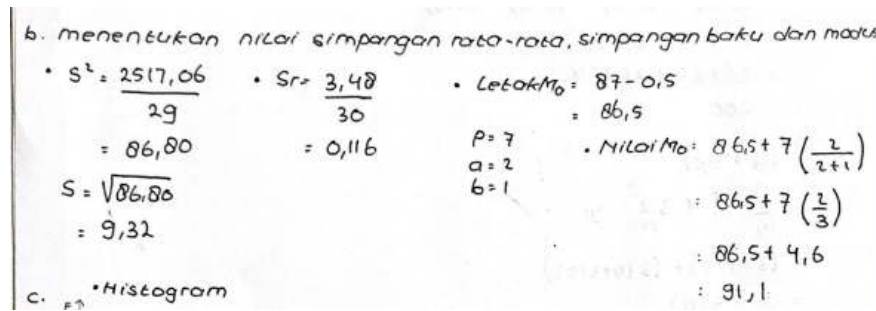 b. menentukan nilai simpangan rata-rata, simpangan baku dan modus
• S² = 2517,06 / 29
= 86,80
S = √86,80
= 9,32
• Sr = 3,48 / 30
= 0,116
• Letak Mo = 87 - 0,5
= 86,5
P = 7
a = 2
b = 1
• Nilai Mo = 86,5 + 7 (2 / 2+1)
= 86,5 + 7 (2/3)
= 86,5 + 4,6
= 91,1
c. • Histogram
F↑